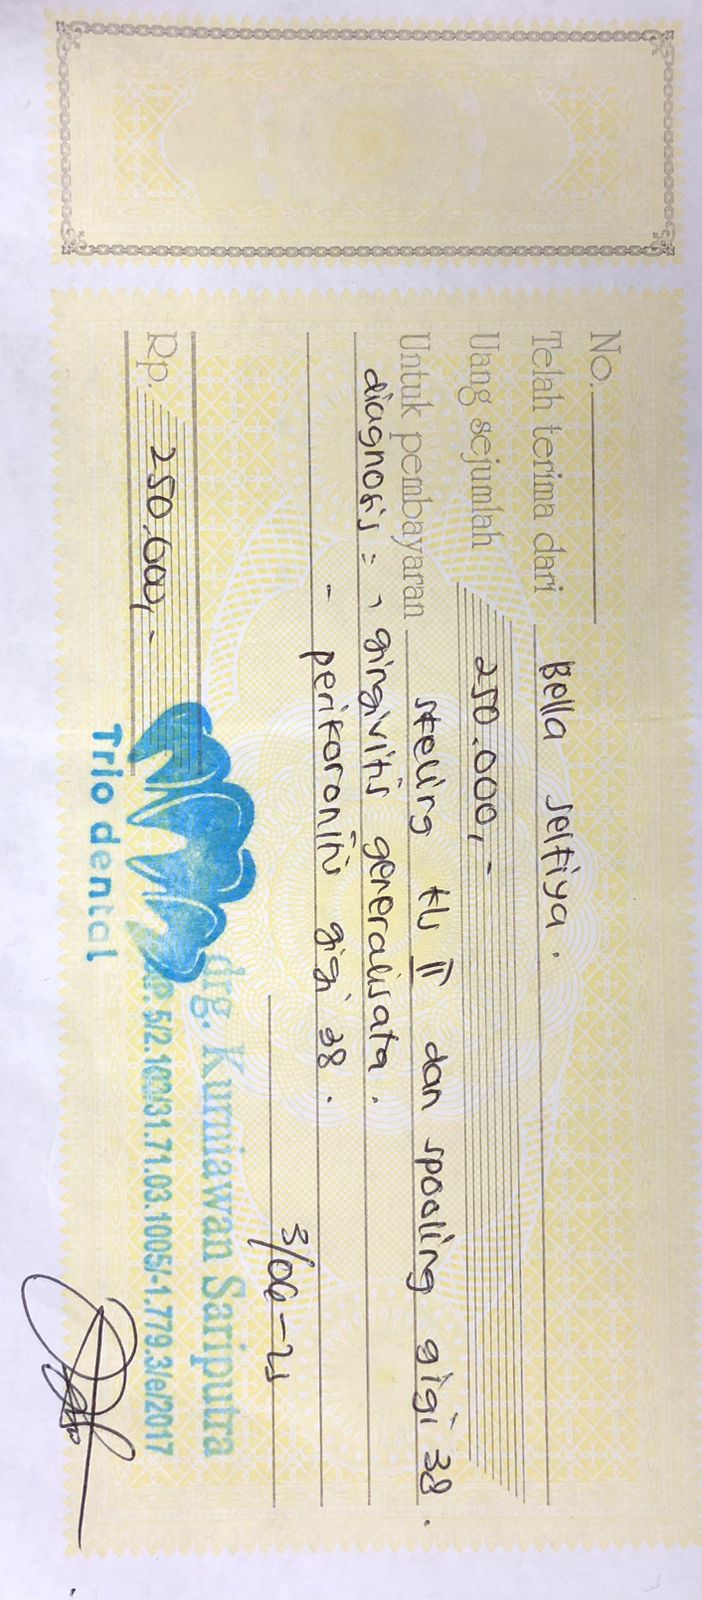 No.
Telah terima dari Bella Selfiya.
Uang sejumlah 250.000,-
Untuk pembayaran skeling kls II dan spooling gigi 38.
diagnosis = - gingivitis generalisata.
- perikoronitis gigi 38.
3/06-25
Rp. 250.000,-
Trio dental
drg. Kurniawan Sariputra
5/2.102/31.71.03.1005/-1.779.3/e/2017